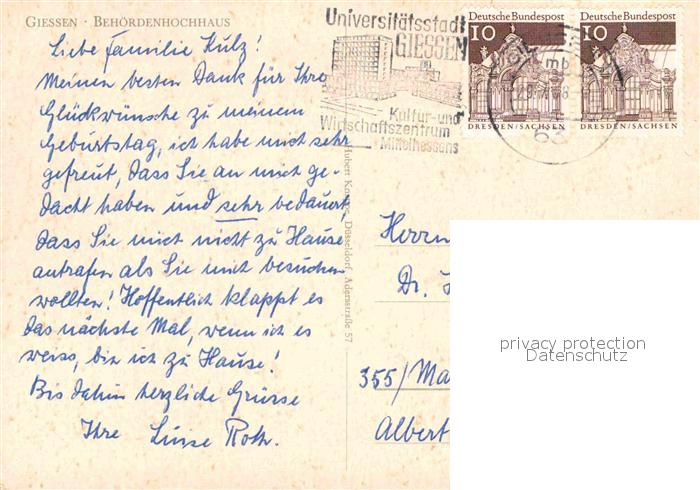 GIESSEN · BEHÖRDENHOCHHAUS
Liebe Familie Kulz!
Meinen besten Dank für Ihre
Glückwünsche zu meinem
Geburtstag, ich habe mich sehr
gefreut, dass Sie an mich ge-
dacht haben und sehr bedauert,
dass Sie mich nicht zu Hause
antrafen als Sie mich besuchen
wollten! Hoffentlich klappt es
das nächste Mal, wenn ich es
weiss, bin ich zu Hause!
Bis dahin herzliche Grüsse
Ihre Luise Roth.
Universitätsstadt
GIESSEN
Kultur- und
Wirtschaftszentrum
Mittelhessens
mb
63
Deutsche Bundespost
10
DRESDEN/SACHSEN
Deutsche Bundespost
10
DRESDEN/SACHSEN
Hubert Düsseldorf, Adersstraße 57
Herrn
Dr.
355/Ma
Albert
privacy protection
Datenschutz